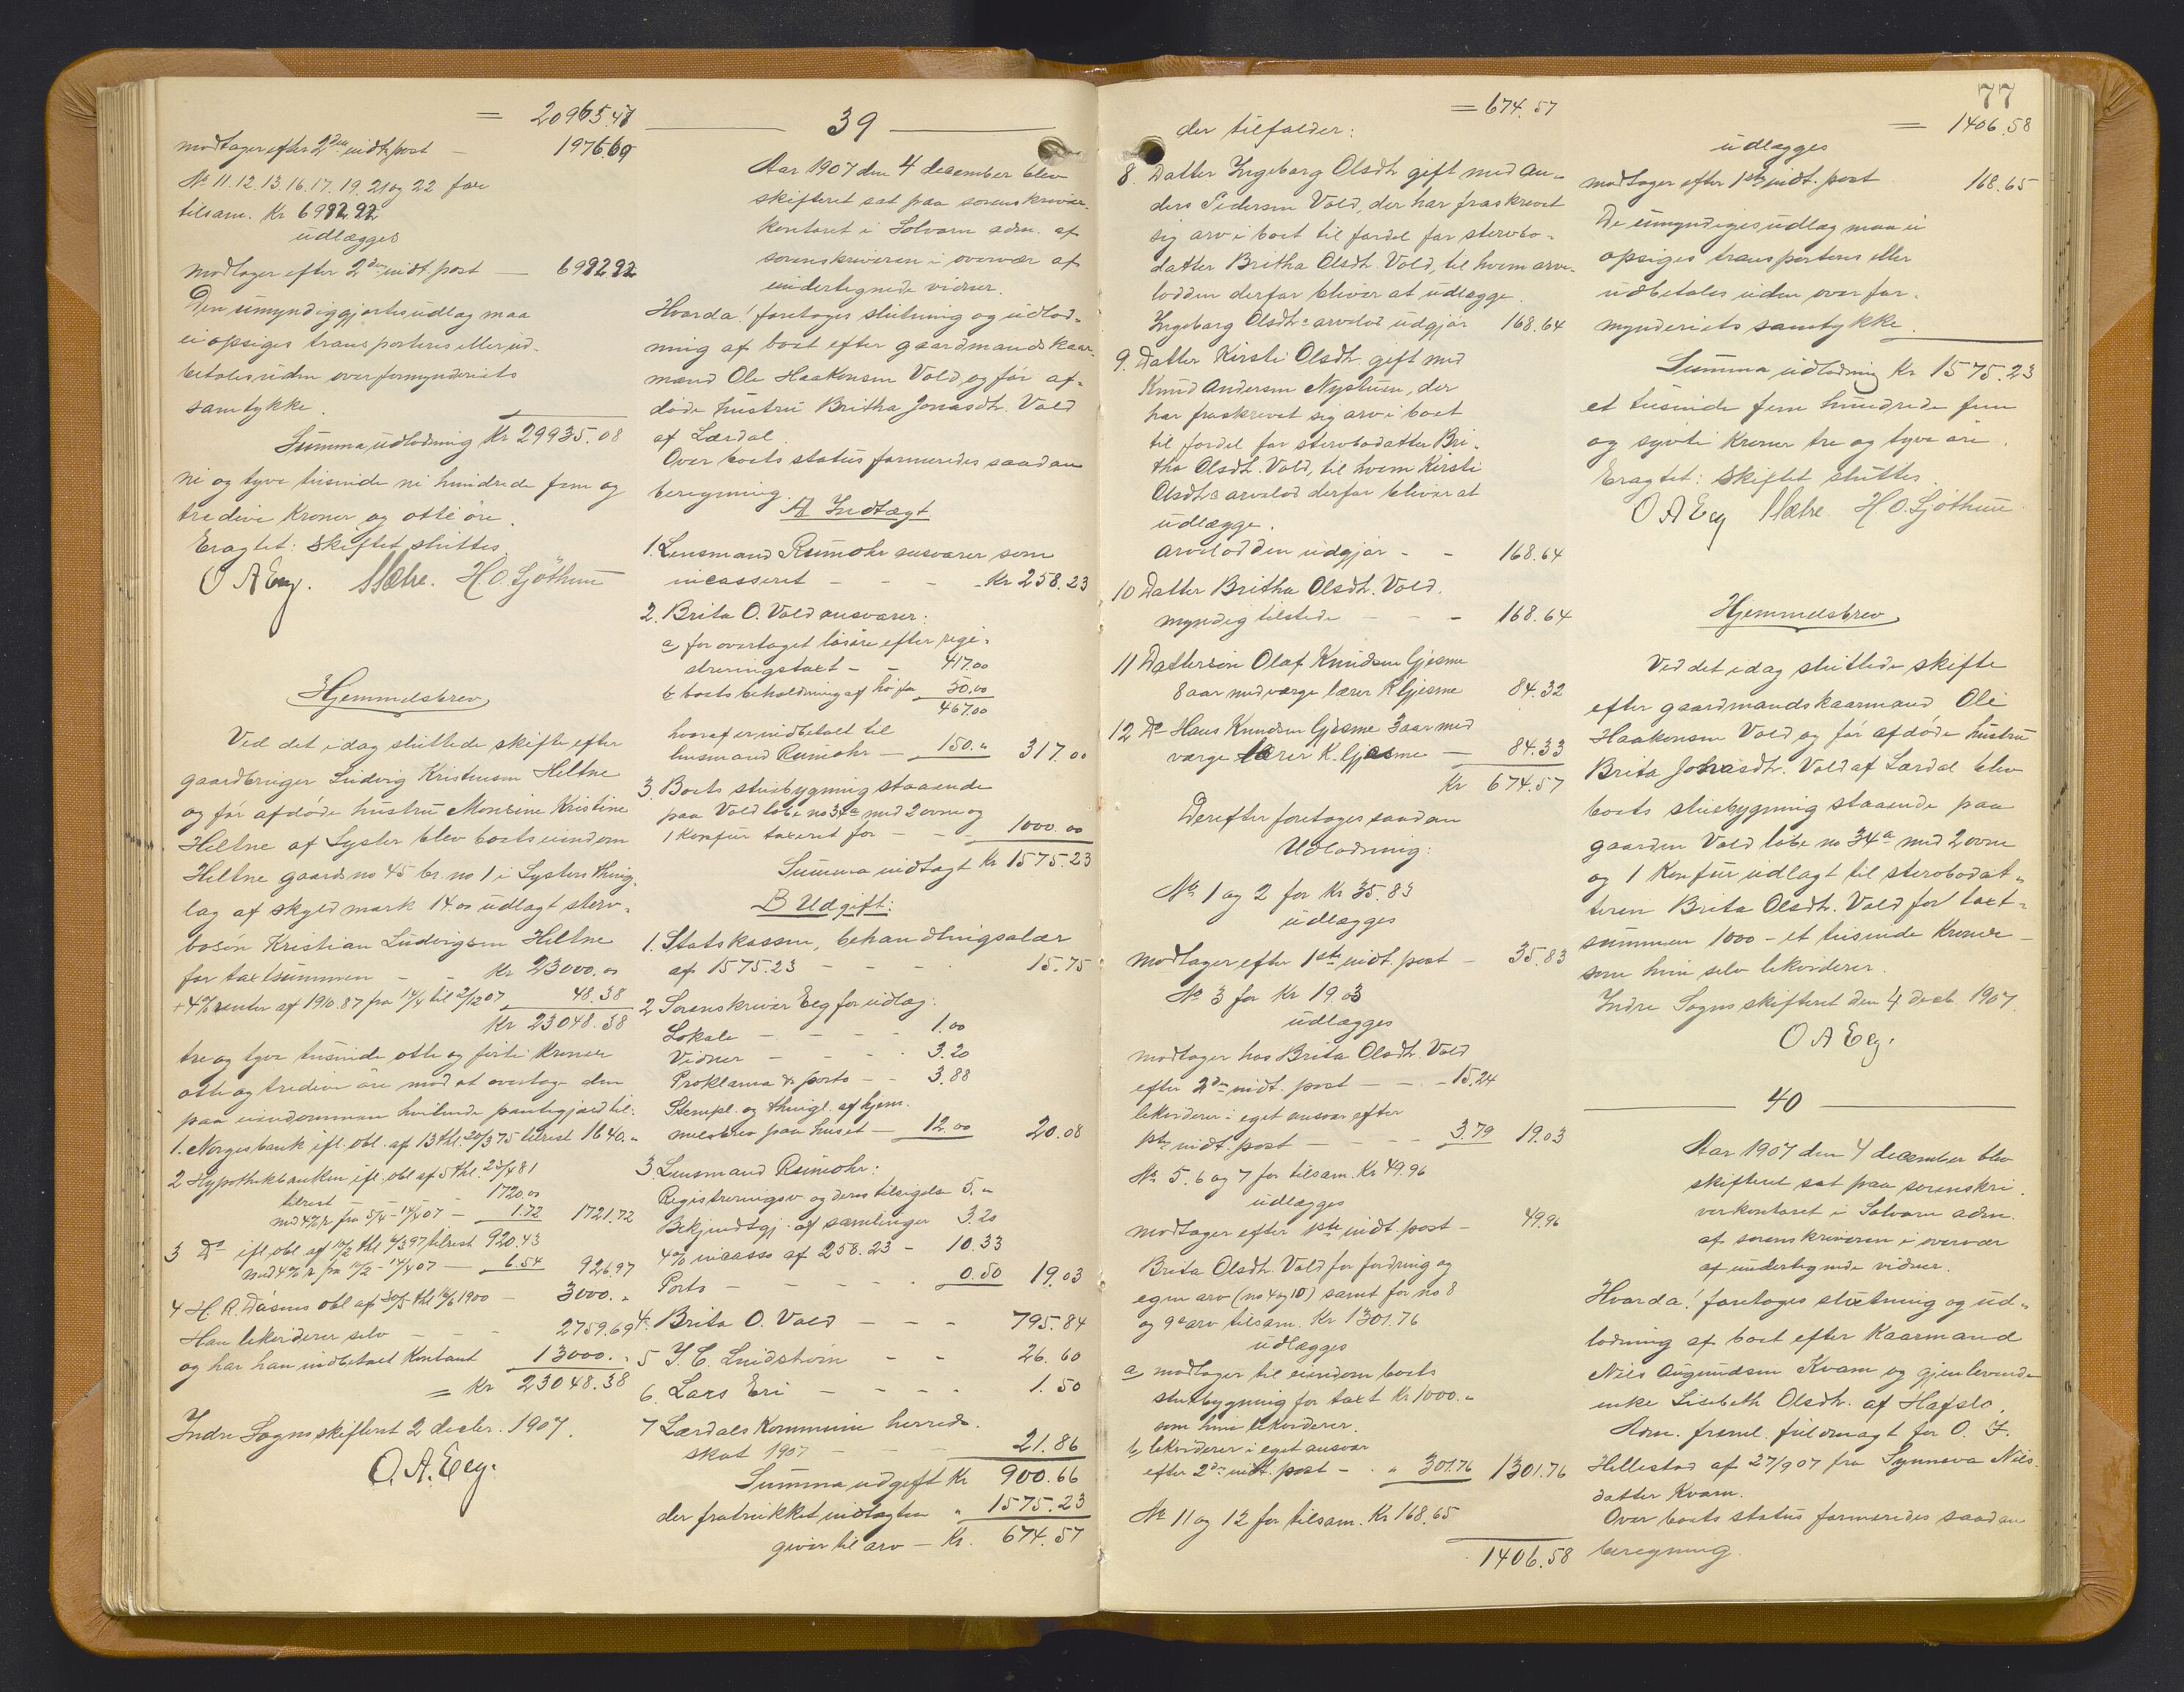 = 20965.48
modtager efter 2den indt. post — 1976.69
No 11. 12. 13. 16. 17. 19. 21 og 22 for
tilsam. Kr 6992.92
udlægges
modtager efter 2den indt. post — 6992.92
Den umyndiggjortes udlag maa
ei opsiges transporteres eller ud-
betales uden overformynderiets
samtykke.
Summa udlodning Kr 29935.08
ni og tyve tusinde ni hundrede fem og
tredive Kroner og otte øre.
Eragtet: Skiftet sluttes
O A Eeg. Mæhre. H. O. Sjøthun
Hjemmelsbrev
Ved det idag sluttede skifte efter
gaardbruger Ludvig Kristensen Heltne
og før afdøde hustru Monsine Kristine
Heltne af Lyster blev boets eiendom
Heltne gaards no 45 br. no 1 i Lysters thing-
lag af skyld mark 14.00 udlagt sterv-
boson Kristian Ludvigsen Heltne
for taxtsummen - - Kr 23000.00
+ 4% renter af 1910.87 fra 14/4 til 2/12 07 48.38
Kr 23048.38
tre og tyve tusinde otte og førti Kroner
otte og tredive øre mod at overtage den
paa eiendommen hvilende pantegjæld til:
1. Norgesbank ifl. obl. af 13 thl. 20/3 75 tilrest 1640.„
2 Hypothekbanken ifl. obl af 5 thl. 23/4 81
tilrest 1720.00
med 4% r fra 5/4 - 14/4 07 — 1.72 1721.72
3 Do ifl. obl. af 10/2 thl 6/3 97 tilrest 920.43
med 4% r fra 10/2 - 14/4 07 — 6.54 926.97
4 H. R. Døsens obl af 30/5 thl 16/6 1900 — 3000.„
Han likviderer selv — — 2759.69
og har han indbetalt Kontant 13000.„
= Kr 23048.38
Indre Sogns skifteret 2 decbr. 1907.
O. A. Eeg.
39
Aar 1907 den 4 december blev
skifteret sat paa sorenskriver-
kontoret i Solvorn adm. af
sorenskriveren i overvær af
undertegnede vidner.
Hvorda! foretoges slutning og udlod-
ning af boet efter gaardmandskaar-
mand Ole Haakonsen Vold og før af-
døde hustru Britha Jonasdtr. Vold
af Lærdal.
Over boets status formeredes saadan
beregning.
A Indtægt
1. Lensmand Rumohr ansvarer som
incasseret - - - Kr 258.23
2. Brita O. Vold ansvarer:
a for overtaget løsøre efter regi-
streringstaxt - - 417.00
b boets beholdning af hø for 50.00
467.00
hvoraf er indbetalt til
lensmand Rumohr — 150.„ 317.00
3. Boets stuebygning staaende
paa Vold løbe no 34a med 2 ovne og
1 Komfur taxeret for - - - 1000.00
Summa indtægt Kr 1575.23
B Udgift:
1. Statskassen, behandlingsalær
af 1575.23 - - - 15.75
2 Sorenskriver Eeg for udlag:
Lokale - - - - 1.00
Vidner - - - 3.20
Proklama & porto - - 3.88
Stempl. og thingl. af hjem-
melsbrev paa huset — 12.00 20.08
3. Lensmand Rumohr:
Registreringsv. og deres tilsigelse 5.„
Bekjendtgj. af samlinger 3.20
4% incasso af 258.23 - 10.33
Porto - - - - - 0.50 19.03
4. Brita O. Vold - - - 795.84
5 J. C. Lindstrøm - - 26.60
6. Lars Eri - - - - 1.50
7 Lærdals Kommune herreds-
skat 1907 - - - 21.86
Summa udgift Kr 900.66
der fratrukket indtægten „ 1575.23
giver til arv — Kr. 674.57
= 674.57
der tilfalder:
8. Datter Ingeborg Olsdtr gift med An-
ders Pedersen Vold, der har fraskrevet
sig arv i boet til fordel for stervbo-
datter Britha Olsdtr Vold, til hvem arve-
lodden derfor bliver at udlægge.
Ingeborg Olsdtrs arvelod udgjør 168.64
9. Datter Kirsti Olsdtr gift med
Knud Andersen Nystuen, der
har fraskrevet sig arv i boet
til fordel for stervbodatter Bri-
tha Olsdtr. Vold, til hvem Kirsti
Olsdtrs arvelod derfor bliver at
udlægge.
Arvelodden udgjør - - 168.64
10 Datter Britha Olsdtr. Vold.
myndig tilstede - - - 168.64
11 Dattersøn Olaf Knudsen Gjesme
8 aar med værge lærer K Gjesme 84.32
12 Do Hans Knudsen Gjesme 3 aar med
værge lærer K. Gjesme — 84.33
Kr 674.57
Derefter foretoges saadan
Udlodning:
No 1 og 2 for Kr 35.83
udlægges
modtager efter 1ste indt. post - 35.83
No 3 for Kr 19.03
udlægges
modtager hos Brita Olsdtr. Vold
efter 2den indt. post - - - 15.24
likviderer i eget ansvar efter
1ste indt. post - - - - 3.79 19.03
No. 5. 6 og 7 for tilsam. Kr 49.96
udlægges
modtager efter 1ste indt. post - 49.96
Brita Olsdtr. Vold for fordring og
egen arv (no 4 og 10) samt for no 8
og 9s arv tilsam. Kr 1301.76
udlægges
a modtager til eiendom boets
stuebygning for taxt Kr 1000.„
som hun likviderer.
b likviderer i eget ansvar
efter 2den indt. post - . „ 301.76 1301.76
No 11 og 12 for tilsam. Kr 168.65
1406.58
77
= 1406.58
udlægges
modtager efter 1ste indt. post 168.65
De umyndiges udlæg maa ei
opsiges transporteres eller
udbetales uden overfor-
mynderiets samtykke.
Summa udlodning Kr 1575.23
et tusinde fem hundrede fem
og sytti Kroner tre og tyve øre.
Eragtet: Skiftet sluttes.
O A Eeg Mæhre. H O. Sjøthun
Hjemmelsbrev
Ved det idag sluttede skifte
efter gaardmandskaarmand Ole
Haakonsen Vold og før afdøde hustru
Brita Jonasdtr. Vold af Lærdal blev
boets stuebygning staaende paa
gaarden Vold løbe no 34a med 2 ovne
og 1 Komfur udlagt til stervbodat-
teren Brita Olsdtr. Vold for taxt-
summen 1000 - et tusinde Kroner -
som hun selv likviderer.
Indre Sogns skifteret den 4 decb. 1907.
O A Eeg.
40
Aar 1907 den 4 december blev
skifteret sat paa sorenskri-
verkontoret i Solvorn adm.
af sorenskriveren i overvær
af undertegnede vidner.
Hvorda! foretoges slutning og ud-
lodning af boet efter Kaarmand
Nils Augundsen Kvam og gjenlevende
enke Lisbeth Olsdtr. af Hafslo.
Adm. freml. fuldmagt for O. F.
Hillestad af 27/9 07 fra Synneva Nils-
datter Kvam.
Over boets status formeredes saadan
beregning.